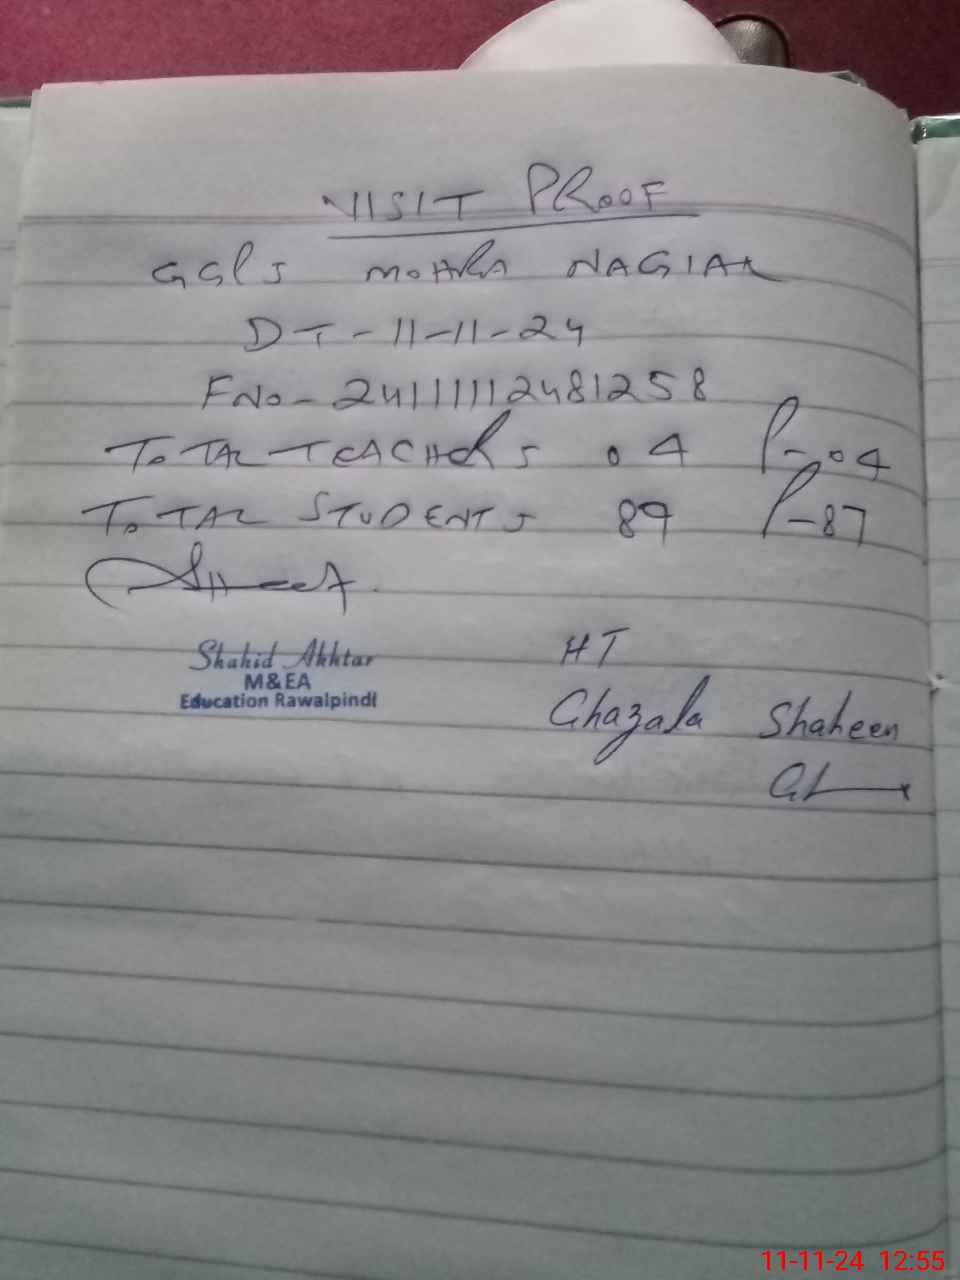 VISIT PROOF
GGPS MOHRA NAGIAL
DT-11-11-24
FNo-24111112481258
TOTAL TEACHERS 04 P-04
TOTAL STUDENTS 89 P-87
Shahid Akhtar
M&EA
Education Rawalpindi
HT
Ghazala Shaheen
11-11-24 12:55